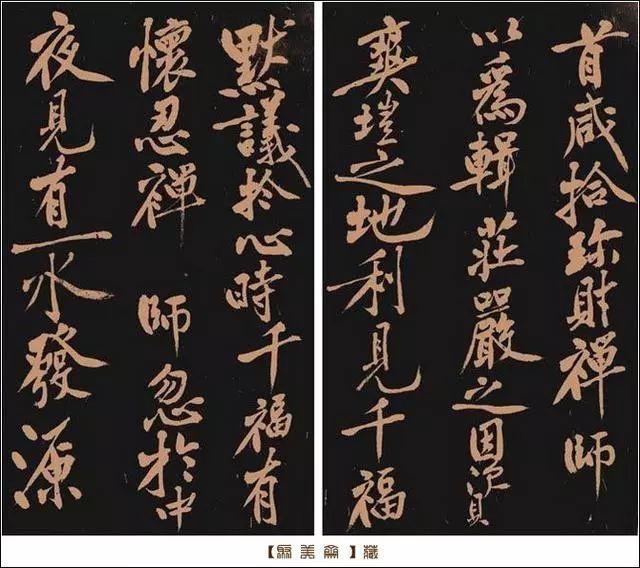 首咸拾珎財禪師
以爲輯莊嚴之因資
爽塏之地利見千福
默議於心時千福有
懷忍禪 師忽於中
夜見有一水發源
【美齋】藏